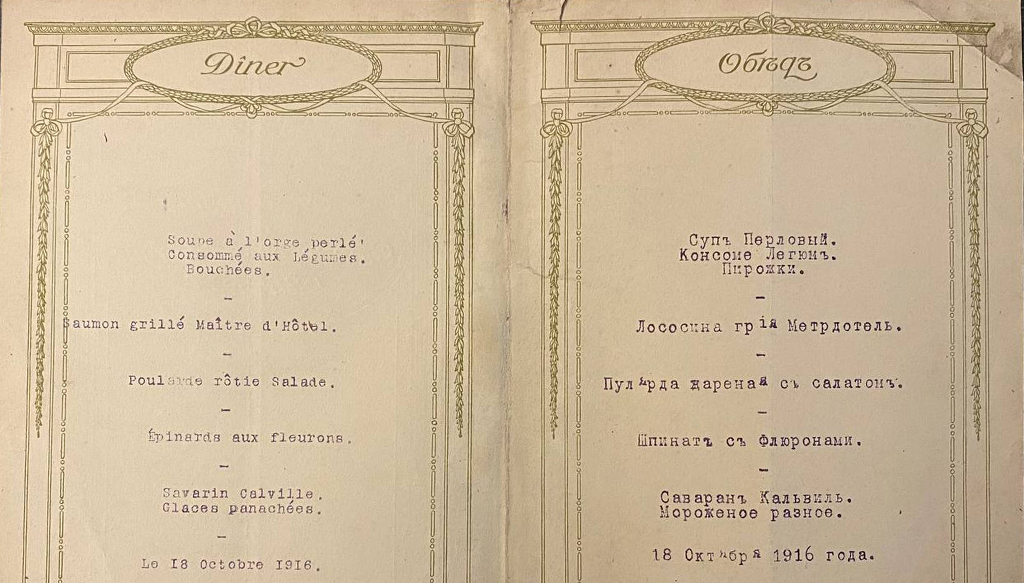 Dîner
Soupe à l'orge perlé'
Consommé aux Légumes.
Bouchées.
–
Saumon grillé Maître d'Hôtel.
–
Poularde rôtie Salade.
–
Épinards aux fleurons.
–
Savarin Calville.
Glaces panachées.
–
Le 18 Octobre 1916.
Обѣдъ
Супъ Перловый.
Консоме Легюмъ.
Пирожки.
–
Лососина грія Метрдотель.
–
Пулярда жареная съ салатомъ.
–
Шпинатъ съ Флюронами.
–
Саваранъ Кальвиль.
Мороженое разное.
18 Октября 1916 года.